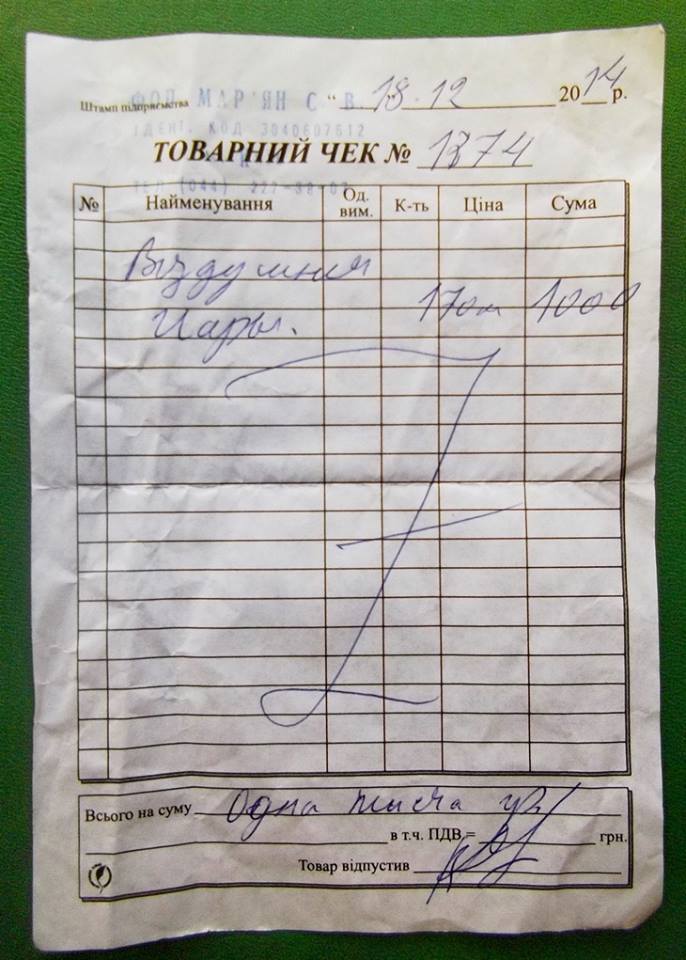 ФОП МАР'ЯН С. В.
Штамп підприємства " 18.12 2014 р.
ІДЕНТ. КОД 3040607612
ТОВАРНИЙ ЧЕК № 1374
ТЕЛ (044)
№ Найменування Од. вим. К-ть Ціна Сума
Воздушния
Шары. 1000
Всього на суму Одна тисяча грн
в т.ч. ПДВ = грн.
Товар відпустив